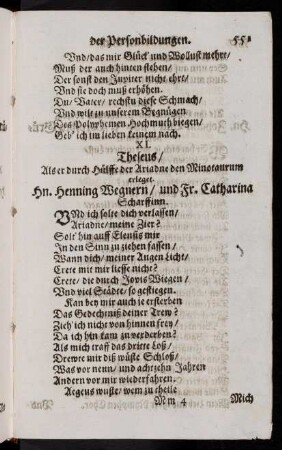 der Personbildungen. 551
Vnd/das mir Glück und Wollust mehrt/
Muß der auch hinten stehen/
Der sonst den Jupiter nicht ehrt/
Vnd sie doch muß erhöhen.
Du/Vater/rechstu diese Schmach/
Vnd wilt in unserem Begnügen
Des Polyphemen Hochmuth biegen/
Geb' ich im lieben keinem nach.
XI.
Theseus/
Als er durch Hülffe der Ariadne den Minotaurum
erleget.
Hn. Henning Wegnern/ und Fr. Catharina
Scharffinn.
VNd ich solte dich verlassen/
Ariadne/meine Zier?
Solt' hin auff Eleusis mir
In den Sinn zu ziehen fassen/
Wann dich/meiner Augen Licht/
Crete mit mir liesse nicht?
Crete/ die durch Jovis Wiegen/
Vnd viel Städte/ so gestiegen.
Kan bey mir auch je ersterben
Das Gedechtniß deiner Trew?
Zieh' ich nicht von hinnen frey/
Da ich hin kam zu verderben?
Als mich traff das dritte Loß/
Drewte mir diß wüste Schloß/
Was vor neun/ und achtzehn Jahren
Andern vor mir wiederfahren.
Aegeus wuste/wem zu theile
Mm 4 Mich